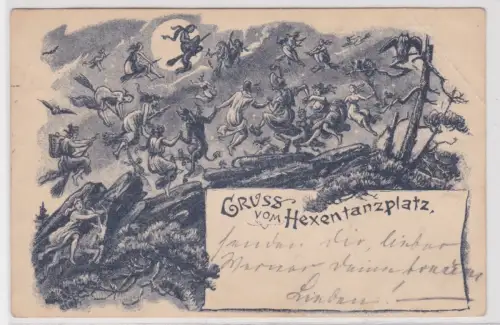 GRUSS
VOM Hexentanzplatz.
senden Dir, lieber
Werner Deine treuen
Lieben!